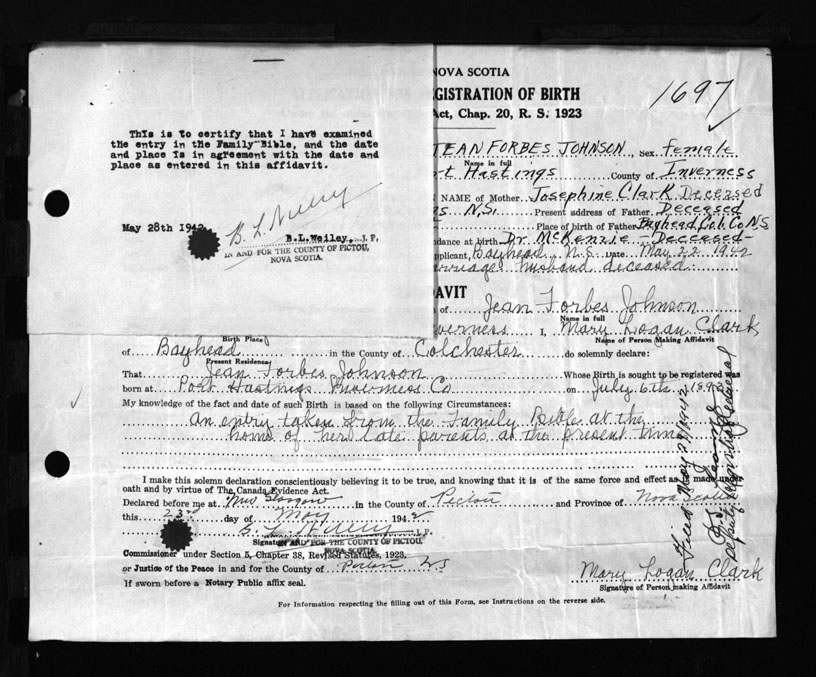 This is to certify that I have examined
the entry in the Family Bible, and the date
and place is in agreement with the date and
place as entered in this affidavit.
May 28th 1942
B. L. Weiley
B.L. Weiley, J. P.
IN AND FOR THE COUNTY OF PICTOU,
NOVA SCOTIA.
NOVA SCOTIA
GISTRATION OF BIRTH
1697
Act, Chap. 20, R. S. 1923
JEAN FORBES JOHNSON, Sex female
Name in full
rt Hastings County of Inverness
NAME of Mother Josephine Clark Deceased
N.S. Present address of Father Deceased
Place of birth of Father Bayhead Col. Co NS
ndance at birth Dr. McKenzie - Deceased -
plicant, Bayhead, N.S. Date May 22 1942
husband deceased
AVIT
of Jean Forbes Johnson
Name in full
verness I, Mary Logan Clark
Birth Place
Name of Person Making Affidavit
of Bayhead in the County of Colchester do solemnly declare:
Present Residence
That Jean Forbes Johnson Whose Birth is sought to be registered was
born at Port Hastings Inverness Co on July 6th
My knowledge of the fact and date of such Birth is based on the following Circumstances:
an entry taken from the Family Bible at the
home of her late parents at the present time
I make this solemn declaration conscientiously believing it to be true, and knowing that it is of the same force and effect as if made under
oath and by virtue of The Canada Evidence Act.
Declared before me at New Glasgow in the County of Pictou and Province of Nova Scotia
this 23 day of May 1942
B. L. Weiley J.P.
Signature
IN AND FOR THE COUNTY OF PICTOU
NOVA SCOTIA
Commissioner under Section 5, Chapter 38, Revised Statutes, 1923,
or Justice of the Peace in and for the County of Pictou NS
If sworn before a Notary Public affix seal.
Mary Logan Clark
Signature of Person making Affidavit
For Information respecting the filling out of this Form, see Instructions on the reverse side.
Filed May 29/1942
Deputy Registrar General